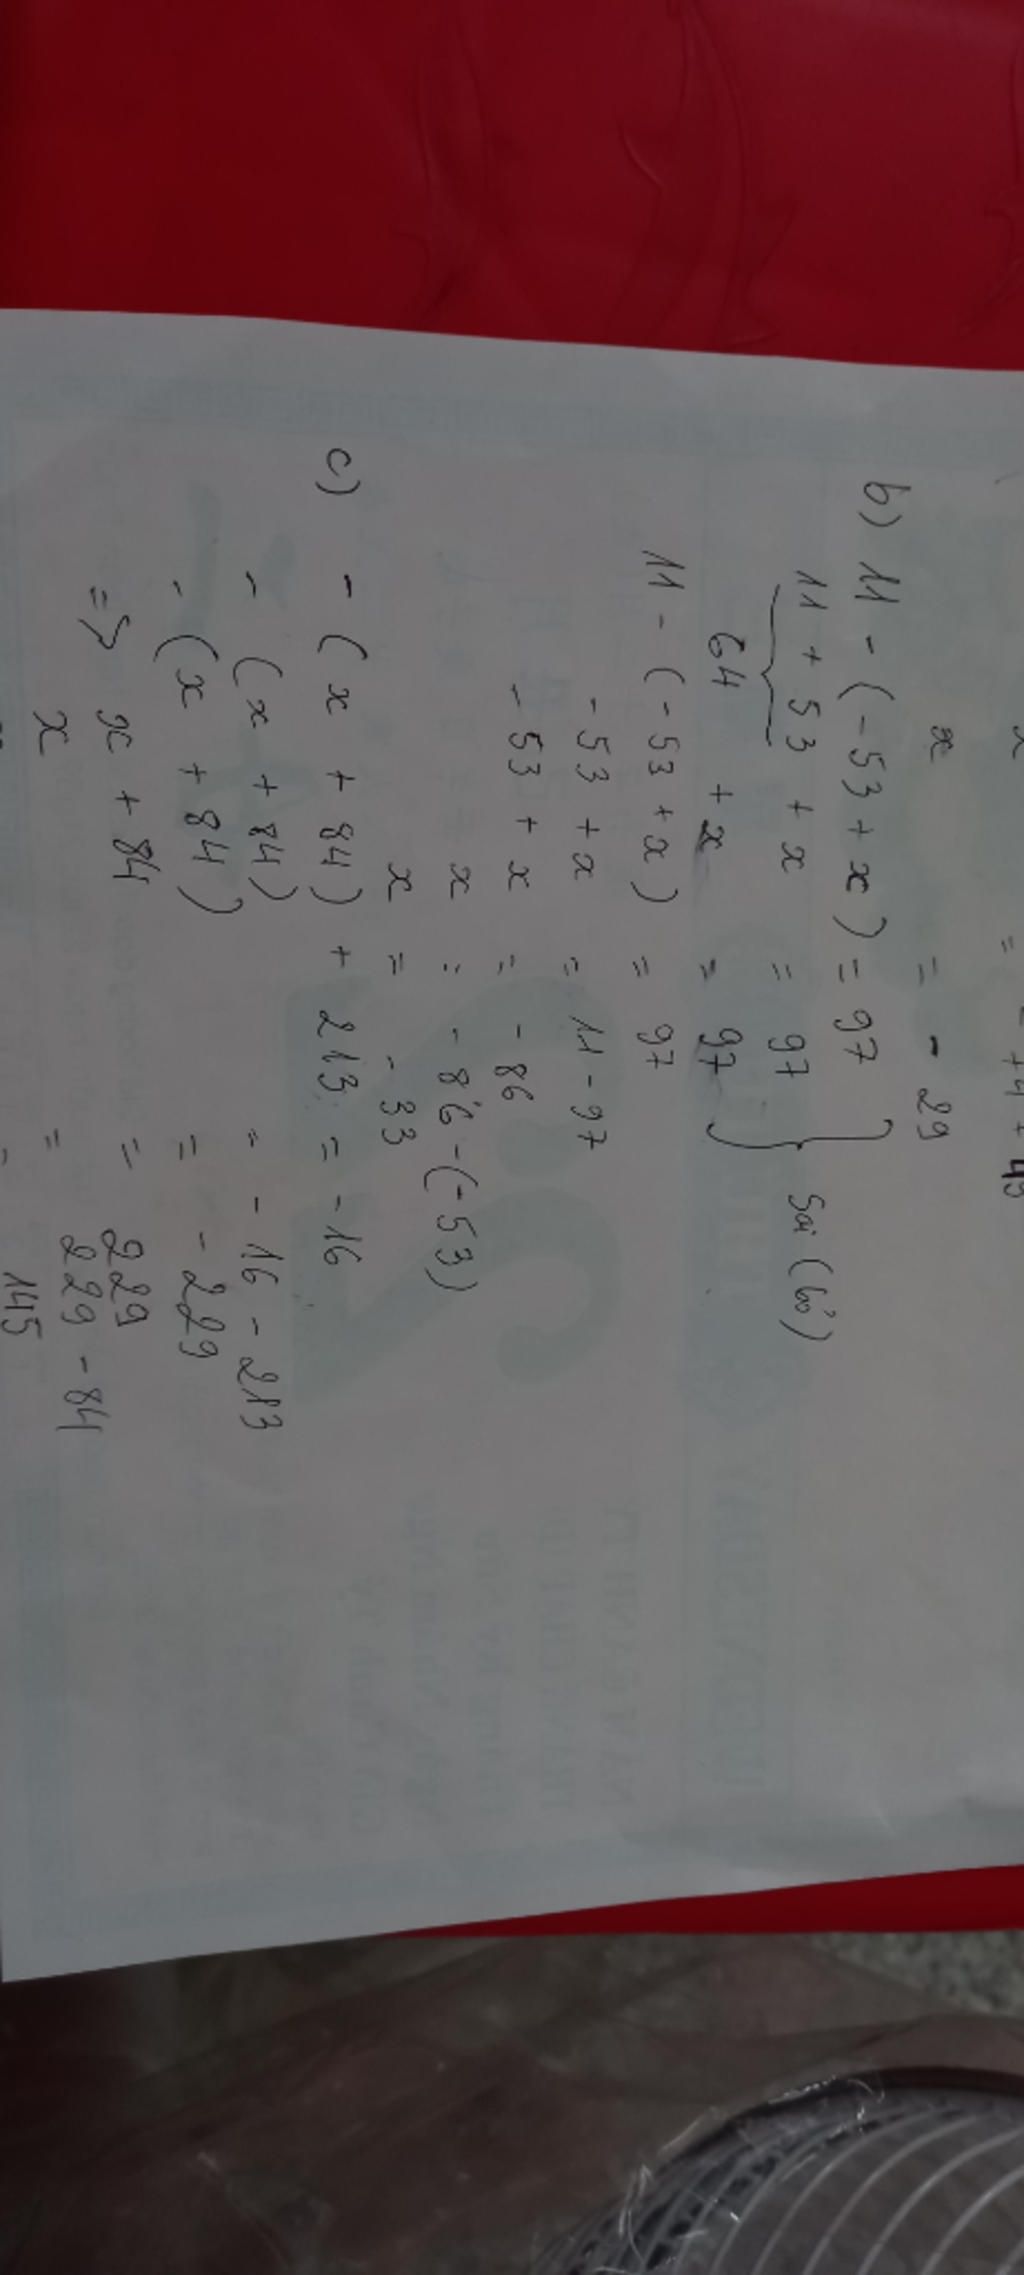 x = - 29
b) 11 - (-53 + x) = 97
11 + 53 + x = 97
64 + x = 97
Sai (bỏ)
11 - (-53 + x) = 97
- 53 + x = 11 - 97
- 53 + x = - 86
x = - 86 - (-53)
x = - 33
c) - (x + 84) + 213 = -16
- (x + 84) = - 16 - 213
- (x + 84) = - 229
=> x + 84 = 229
x = 229 - 84
= 145